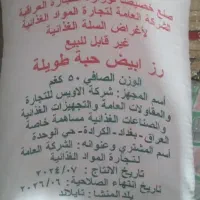 صنع خصيصا لوزارة التجارة العراقية
الشركة العامة لتجارة المواد الغذائية
لأغراض السلة الغذائية
غير قابل للبيع
رز ابيض حبة طويلة
الوزن الصافي ٥٠ كغم
أسم المجهز: شركة الاويس للتجارة
والمقاولات العامة والتجهيزات الغذائية
والصناعات الغذائية مساهمة خاصة
العراق- بغداد- الكرادة- حي الوحدة
أسم المشتري وعنوانه: الشركة العامة
لتجارة المواد الغذائية
تاريخ الانتاج : ٢٠٢٤/٠٧
تاريخ إنتهاء الصلاحية: ٢٠٢٦/٠٦
بلد المنشأ: تايلاند